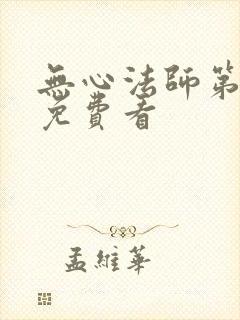 無心法師第
免費看
孟維華